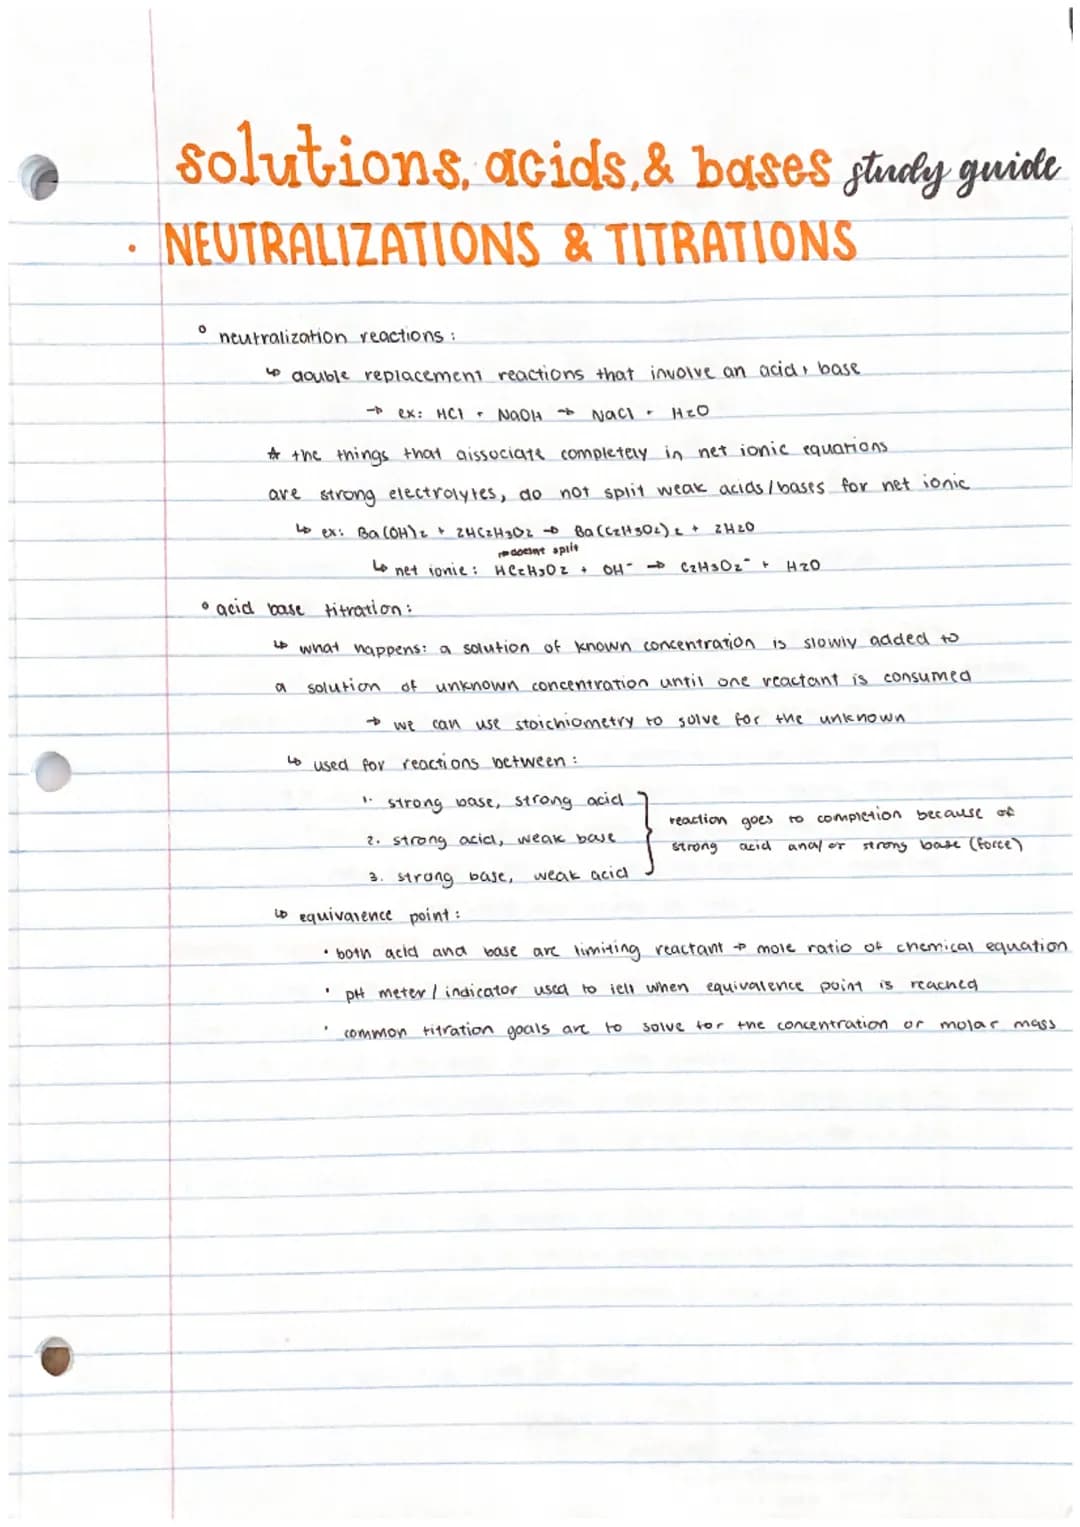 solutions, acids, & bases study guide
• NEUTRALIZATIONS & TITRATIONS
° neutralization reactions:
↳ double replacement reactions that involve an acid, base
→ ex: HCl + NaOH → NaCl + H2O
* the things that dissociate completely in net ionic equations
are strong electrolytes, do not split weak acids/bases for net ionic
↳ ex: Ba(OH)2 + 2HC2H3O2 → Ba(C2H3O2)2 + 2H2O
doesnt split
↳ net ionic: HC2H3O2 + OH⁻ → C2H3O2⁻ + H2O
° acid base titration:
↳ what happens: a solution of known concentration is slowly added to
a solution of unknown concentration until one reactant is consumed
→ we can use stoichiometry to solve for the unknown
↳ used for reactions between:
1. strong base, strong acid
2. strong acid, weak base
3. strong base, weak acid
reaction goes to completion because of
strong acid and/or strong base (force)
↳ equivalence point:
• both acid and base are limiting reactant → mole ratio of chemical equation
• pH meter/indicator used to tell when equivalence point is reached
• common titration goals are to solve for the concentration or molar mass